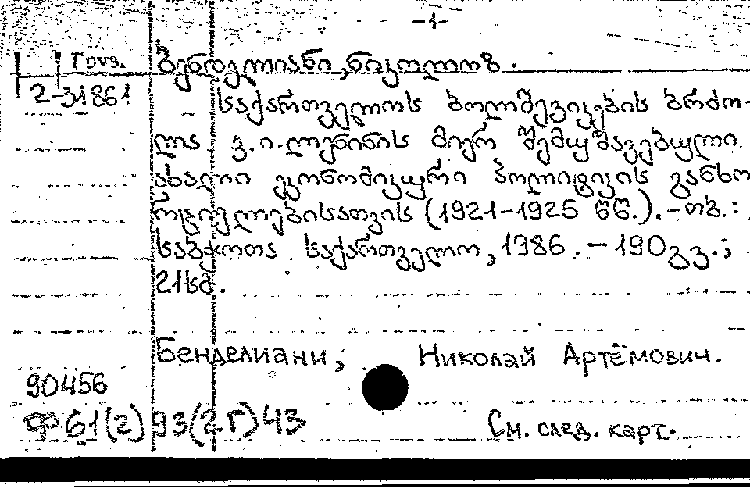 -1-
ბენდელიანი, ნიკოლოზ.
2-31861
საქართველოს ბოლშევიკების ბრძო-
ლა ვ.ი.ლენინის მიერ შემუშავებული
ახალი ეკონომიკური პოლიტიკის განხო
რციელებისათვის (1921-1925 წწ.).-თბ.:
საბჭოთა საქართველო, 1986.-190გვ.;
21სმ.
Бенделиани, Николай Артёмович.
90456
Ф61(2) 93(2Г)43
См. след. карт.